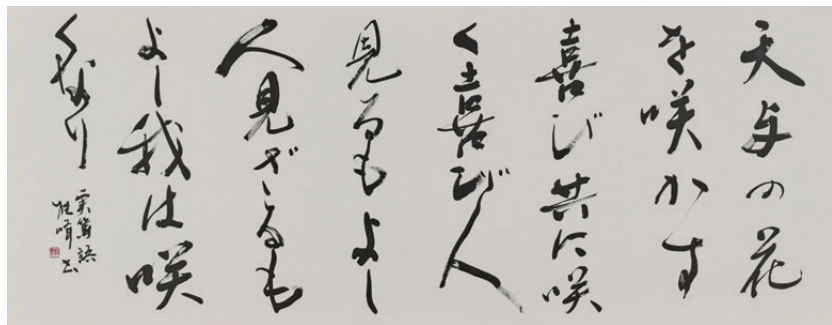 天与の花
を咲かす
喜び共に咲
く喜び人
見るもよし
人見ざるも
よし我は咲
くなり
実篤語